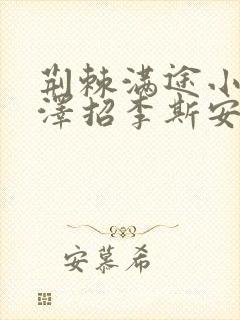 荆棘满途小
泽招李斯安
安慕希